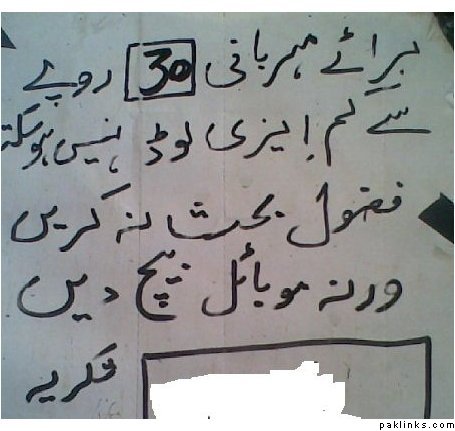 برائے مہربانی 30 روپے
سے کم ایزی لوڈ نہیں ہوسکتا
فضول بحث نہ کریں
ورنہ موبائل بیچ دیں
شکریہ
paklinks.com